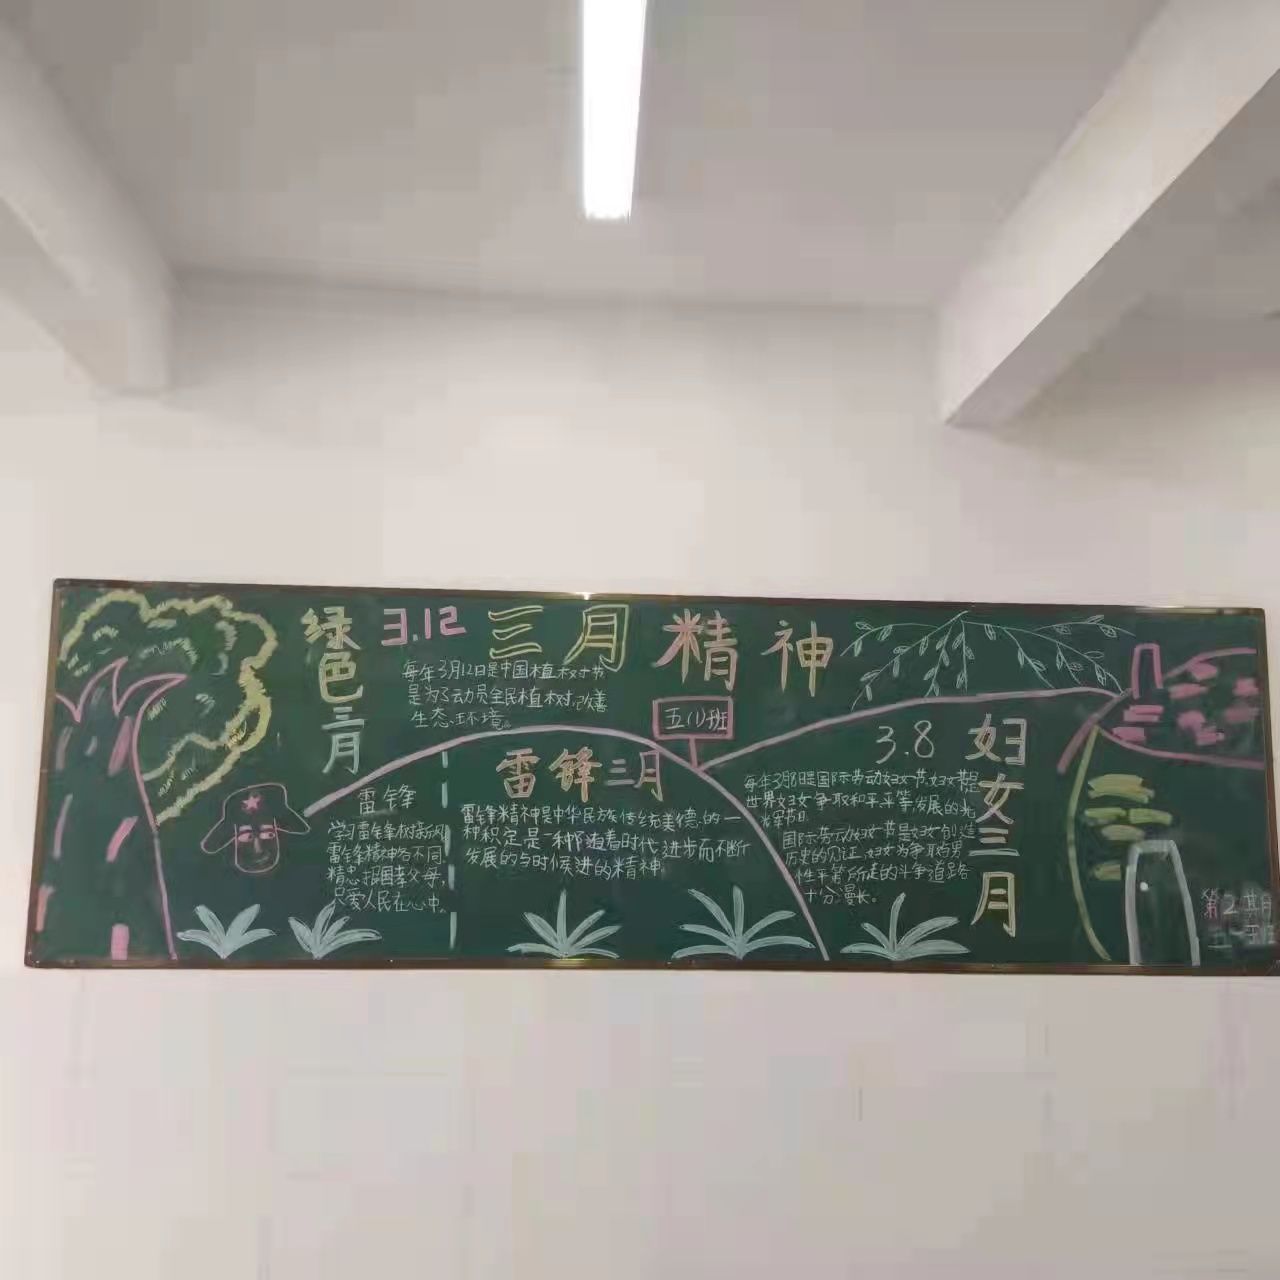 绿色三月
3.12
三月精神
每年3月12日是中国植树节
是为了动员全民植树,改善
生态环境。
五(1)班
雷锋
学习雷锋树新风
雷锋精神各不同
精忠报国孝父母,
只爱人民在心中。
雷锋三月
雷锋精神是中华民族传统美德的一
种积定是一种随着时代进步而不断
发展的与时候进的精神。
3.8
妇女三月
每年3月8日是国际劳动妇女节,妇女节是
世界妇女争取和平平等发展的光
辉节日
国际劳动妇女节是妇女创造
历史的见证,妇女为争取与男
性平等所走的斗争道路
十分漫长。
第2期
五一班